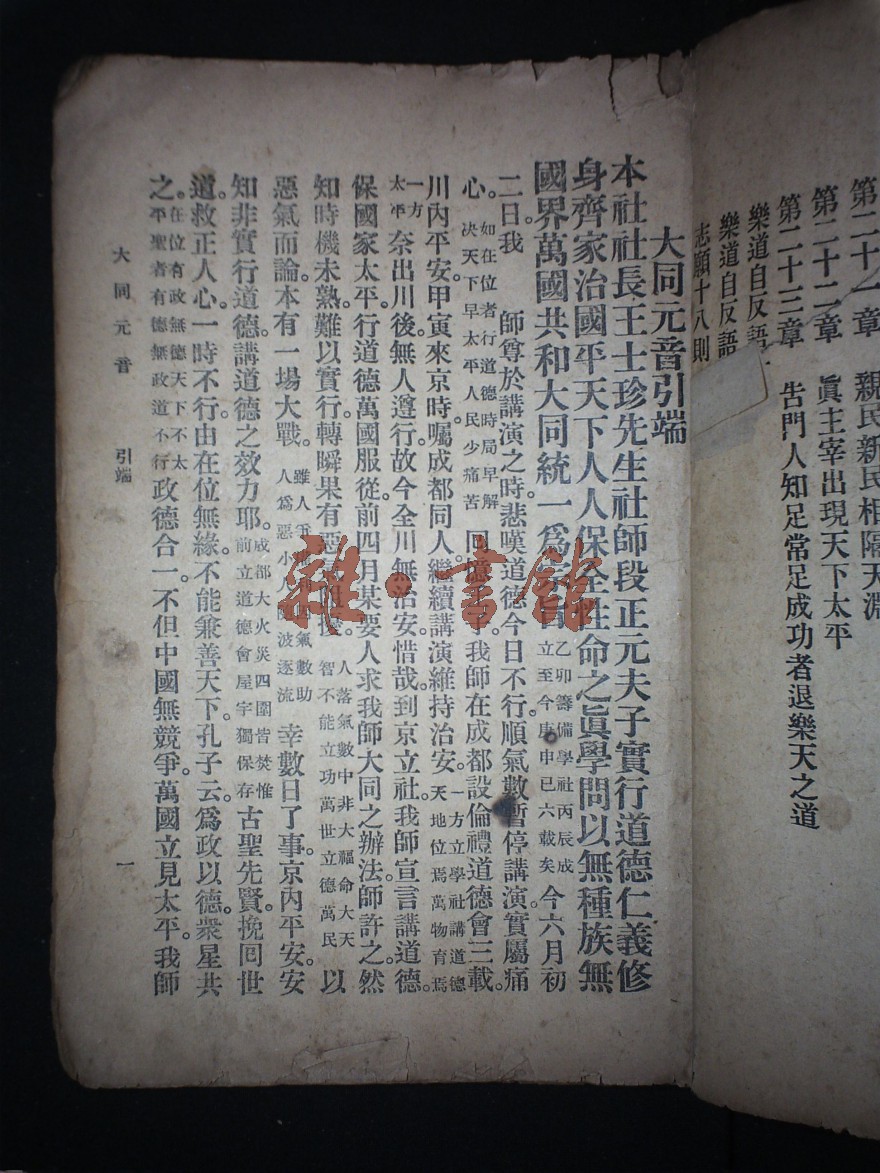 第二十一章　親民新民相隔天淵
第二十二章　眞主宰出現天下太平
第二十三章　告門人知足常足成功者退樂天之道
樂道自反語
樂道自反語
志願十八則
大同元音引端
本社社長王士珍先生社師段正元夫子實行道德仁義修
身齊家治國平天下人人保全性命之眞學問以無種族無
國界萬國共和大同統一爲 乙卯籌備學社丙辰成立至今庚申已六載矣 今六月初
二日我　師尊於講演之時悲嘆道德今日不行順氣數暫停講演實屬痛
心。如在位者行道德時局早解决天下早太平人民少痛苦 回憶 我師在成都設倫禮道德會三載。
川內平安。甲寅來京時。囑成都同人繼續講演維持治安。一方立學社講道德天地位焉萬物育焉
一方太平 奈出川後。無人遵行。故今全川無治安。惜哉。到京立社。我師宣言講道德。
保國家太平。行道德萬國服從。前四月某要人求我師大同之辦法。師許之。然
知時機未熟。難以實行。轉瞬果有惡 人落氣數中非大福命大天智不能立功萬世立德萬民 以
惡氣而論。本有一場大戰。雖人 氣數助人爲惡小人 波逐流 幸數日了事。京內平安。安
知非實行道德。講道德之效力耶。成都大火災四圍皆焚惟前立道德會屋宇獨保存 古聖先賢。挽回世
道。救正人心。一時不行。由在位無緣。不能兼善天下。孔子云。爲政以德。衆星共
之。在位有政無德天下不太平聖者有德無政道不行 政德合一。不但中國無競爭。萬國立見太平。我師
大同元音　引端　一
雜·書館